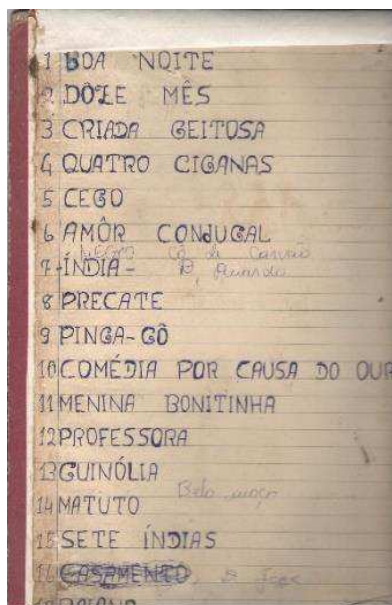 1 BOA NOITE
2 DÔZE MÊS
3 CRIADA GEITOSA
4 QUATRO CIGANAS
5 CEGO
6 AMÔR CONJUGAL
7-ÍNDIA-
8 PRECATE
9 PINGA-GÔ
10 COMÉDIA POR CAUSA DO OUR
11 MENINA BONITINHA
12 PROFESSORA
13 GUINÓLIA
Belo moço
14 MATUTO
15 SETE ÍNDIAS
16 CASAMENTO